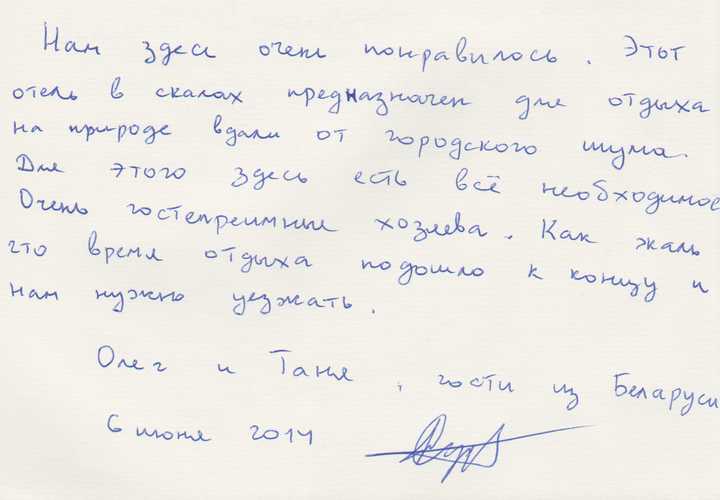 Нам здесь очень понравилось. Этот
отель в скалах предназначен для отдыха
на природе вдали от городского шума.
Для этого здесь есть всё необходимое
Очень гостеприимные хозяева. Как жаль
что время отдыха подошло к концу и
нам нужно уезжать.
Олег и Таня, гости из Беларуси
6 июня 2014